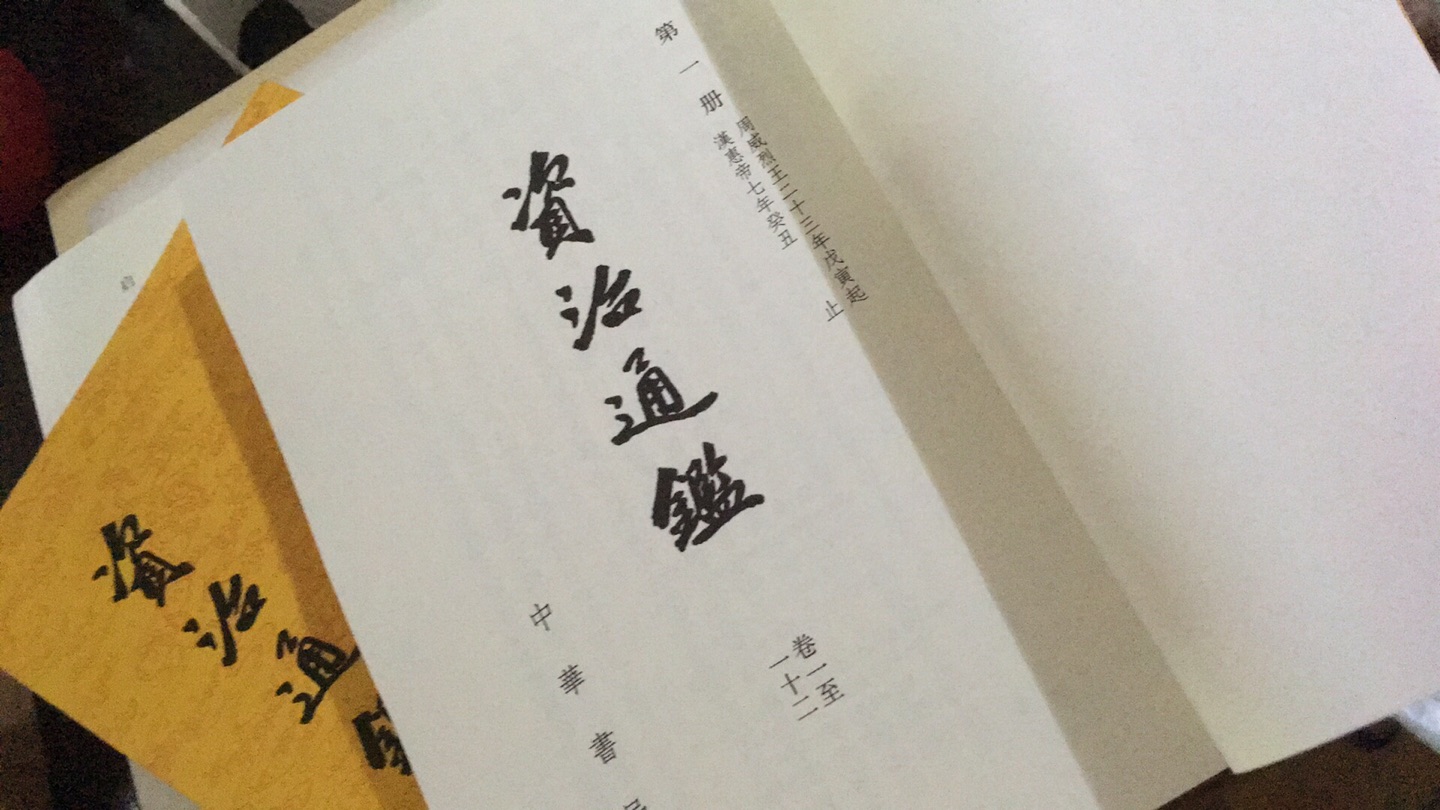 第一册
周威烈王二十三年戊寅起
漢惠帝七年癸丑 止
卷一至
一十二
資治通鑑
中華書
資治通